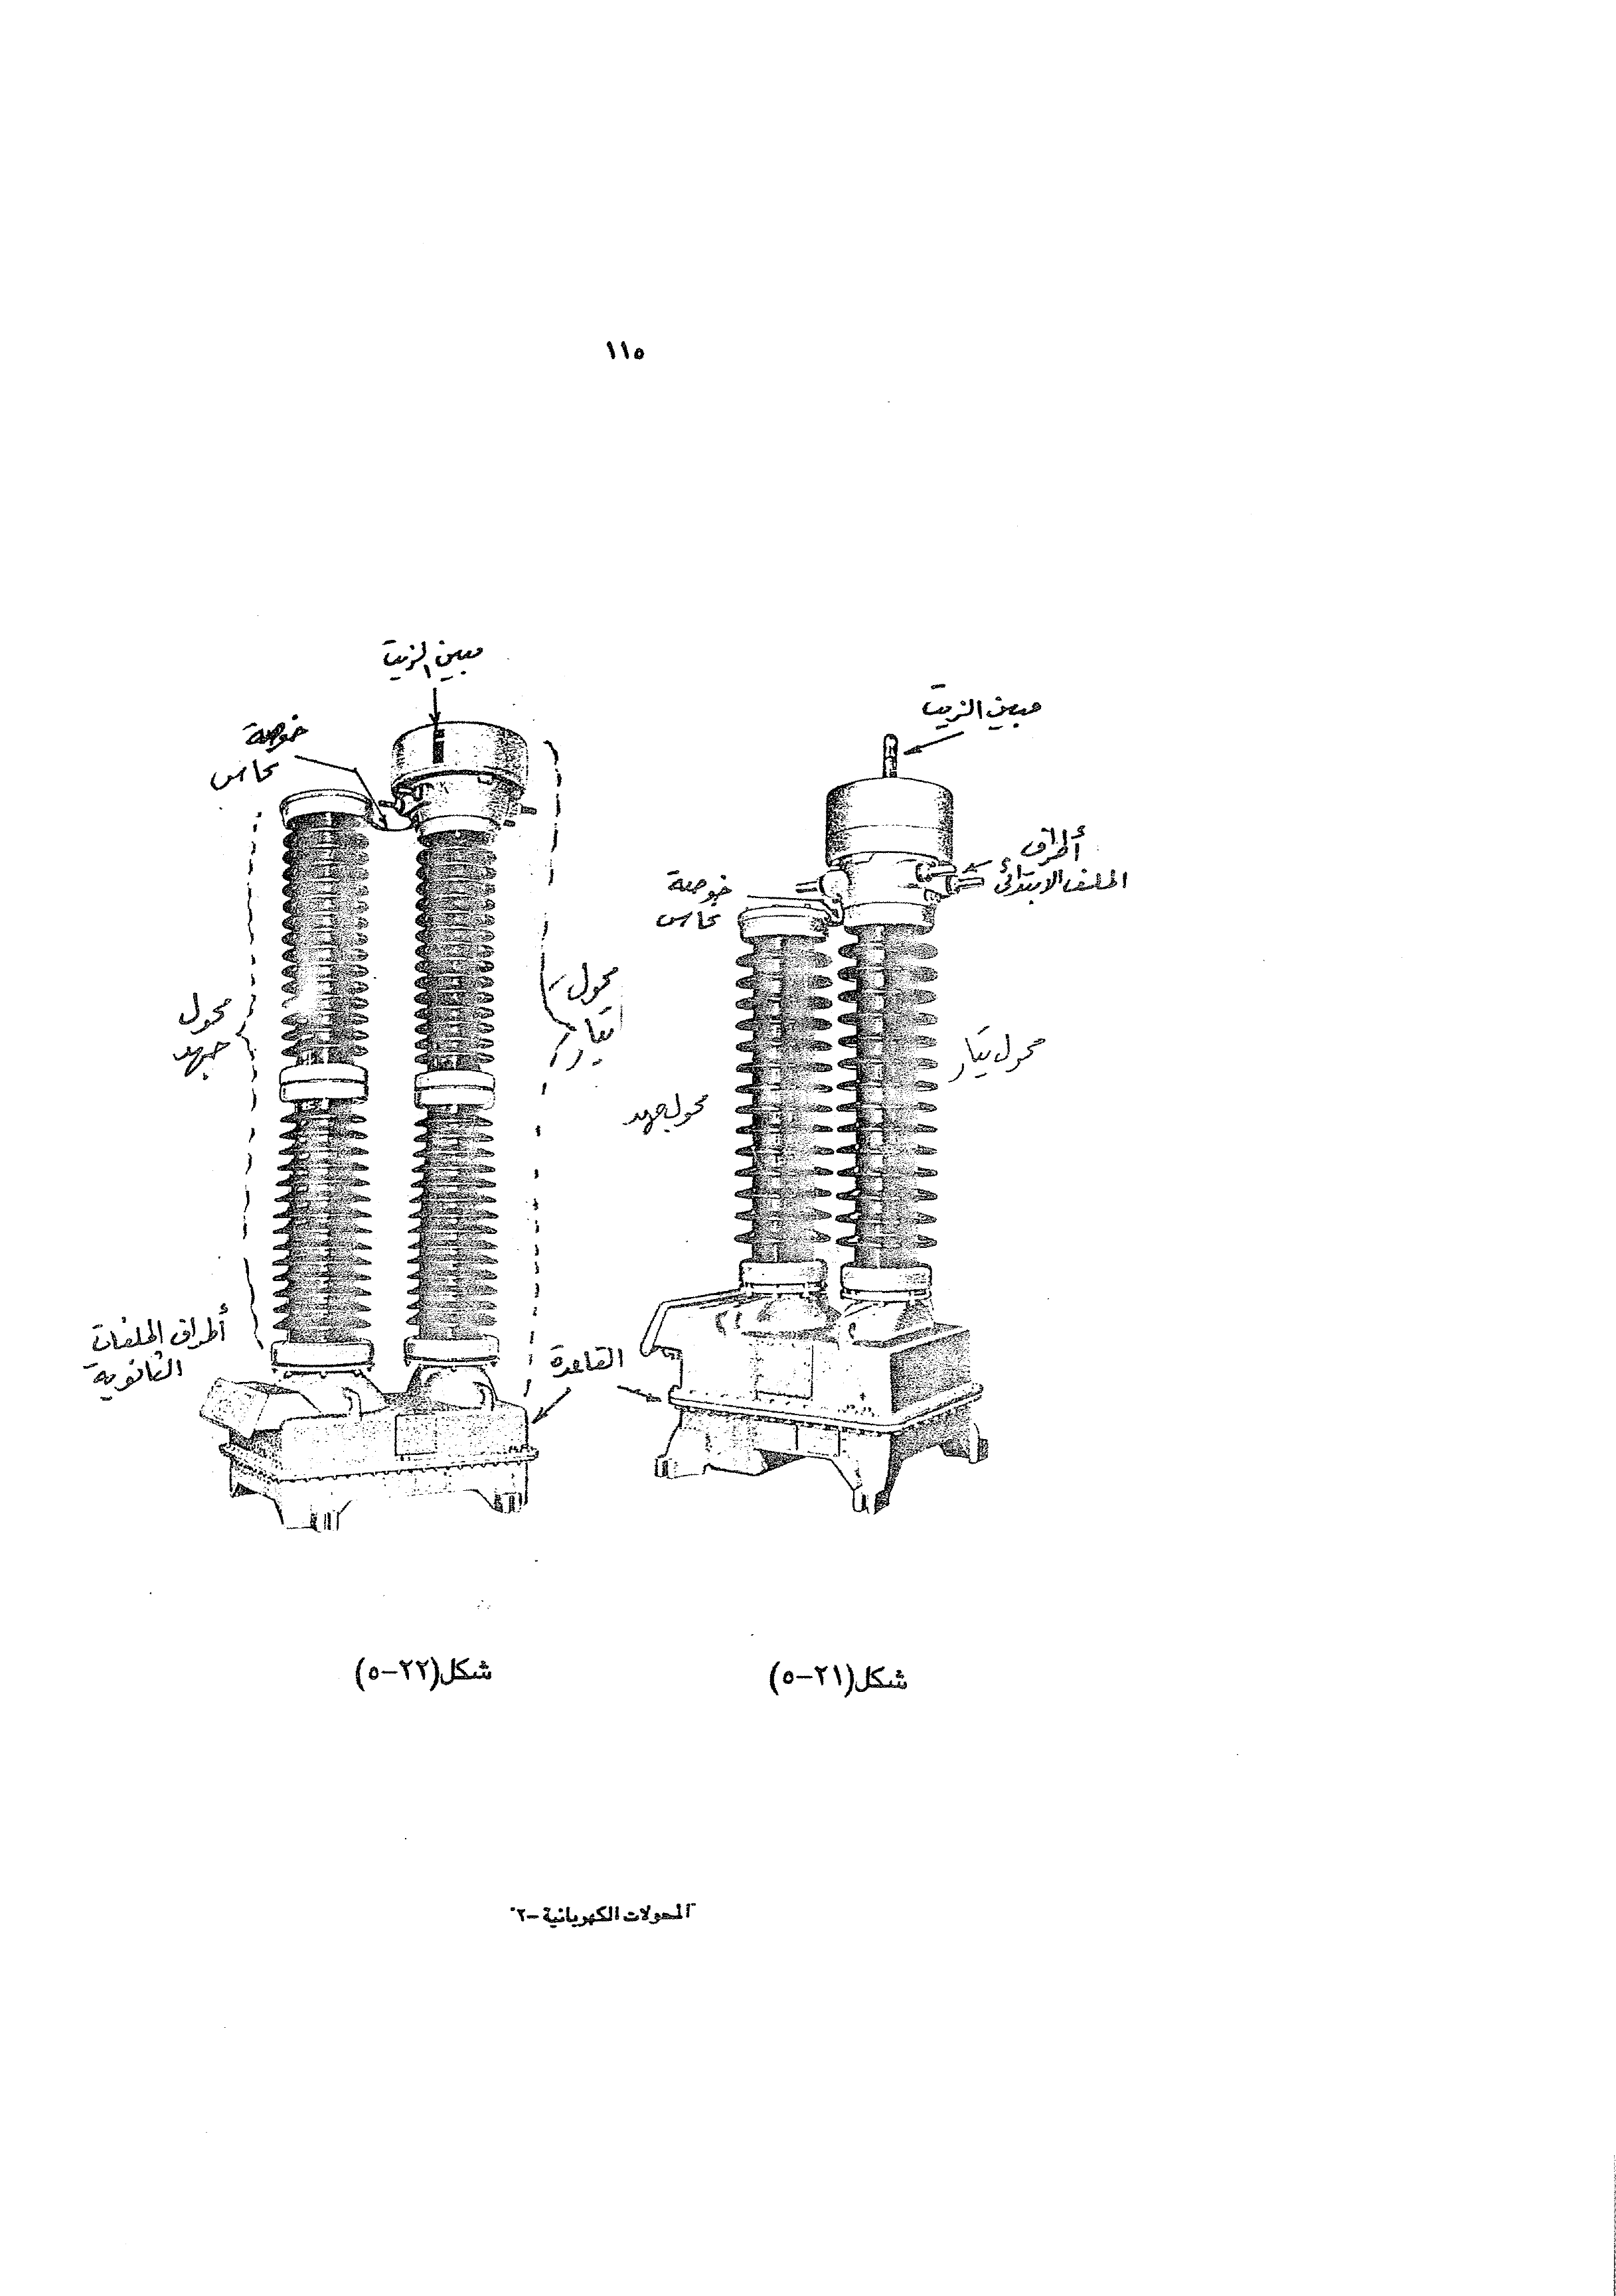 ١١٥
مبين الزيت
خوصة
نحاس
محول
تيار
محول
جهد
أطراف الملفات
الثانوية
القاعدة
مبين الزيت
أطراف
الملف الابتدائى
خوصة
نحاس
محول تيار
محول جهد
شكل(٢١-٥)
شكل(٢٢-٥)
"المحولات الكهربائية -٢"